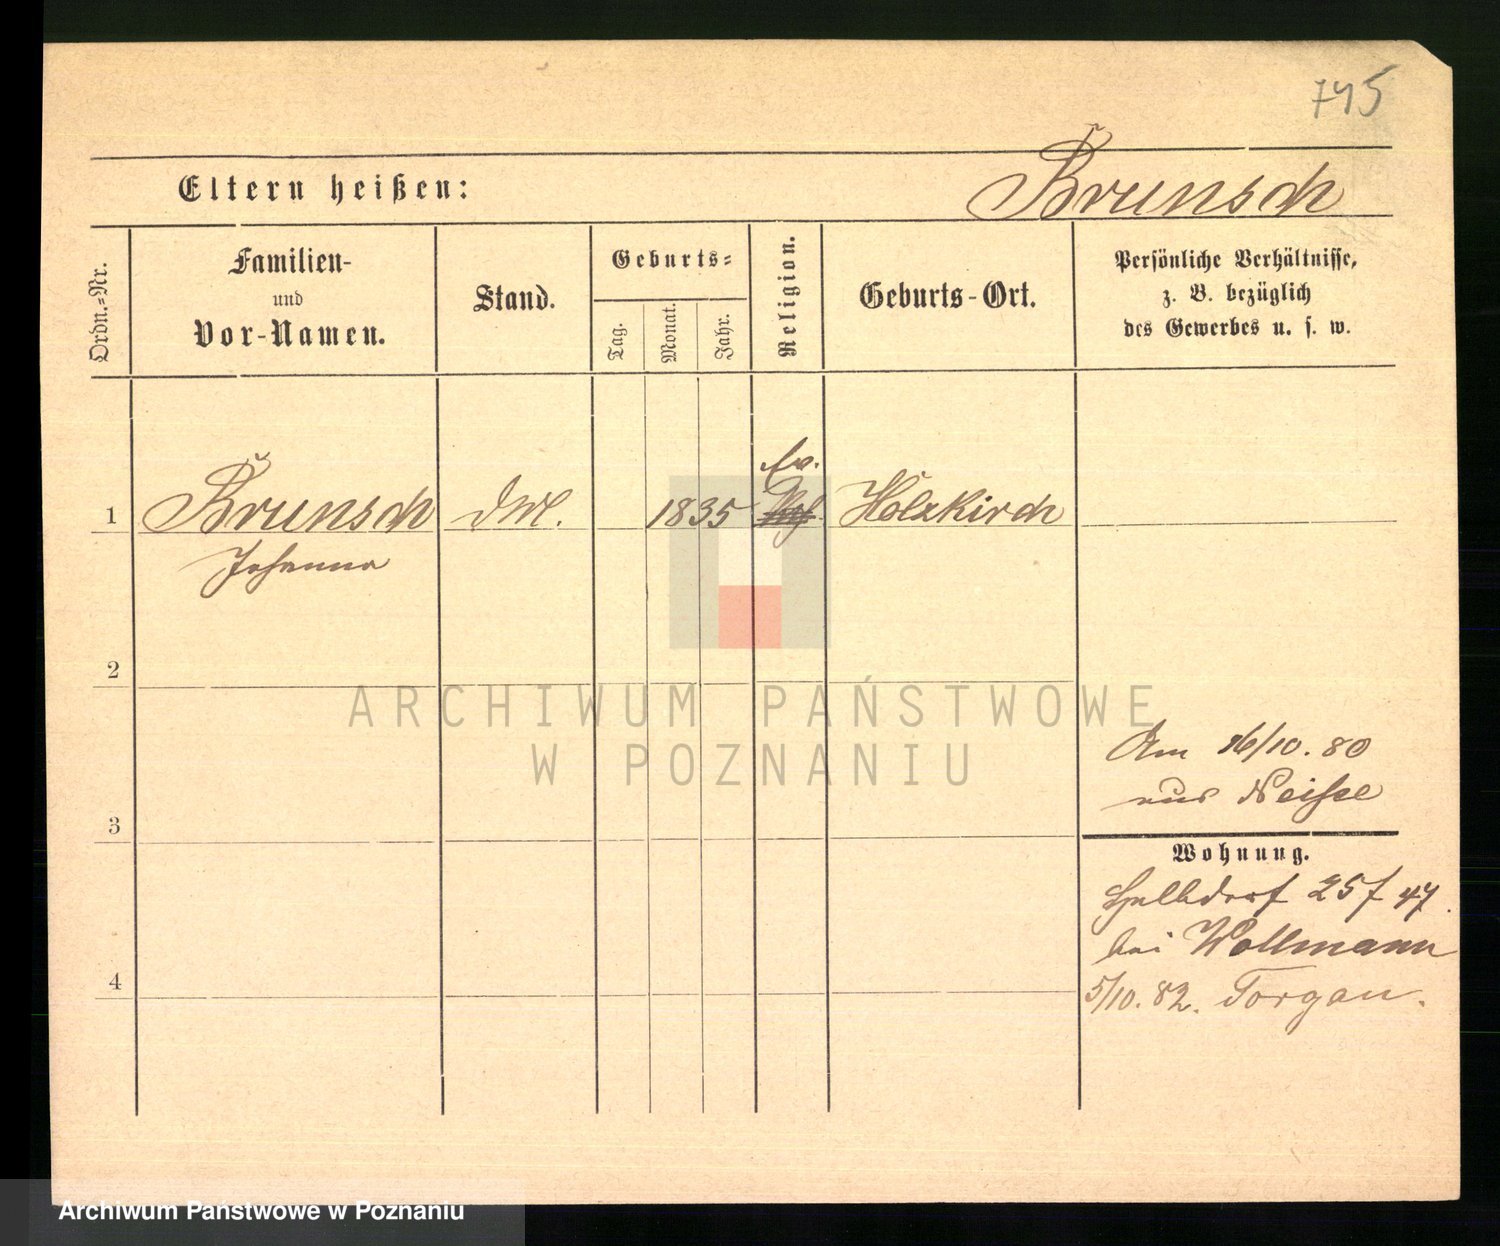 745
Eltern heißen: Brunsch
Ordn.=Nr.
Familien-
und
Vor-Namen.
Stand.
Geburts=
Tag.
Monat.
Jahr.
Religion.
Geburts-Ort.
Persönliche Verhältnisse,
z. B. bezüglich
des Gewerbes u. s. w.
ev.
1 Brunsch 1835 Holzkirch
Johanna
2
ARCHIWUM PAŃSTWOWE
W POZNANIU
Am 16/10. 80
aus Neisse
3
Wohnung.
25 f 47.
bei Wollmann
4
5/10. 82. Torgau.
Archiwum Państwowe w Poznaniu